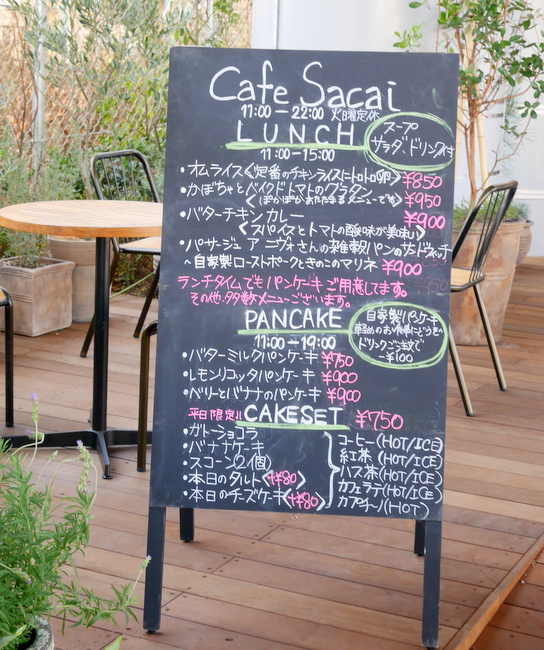 Cafe Sacai
11:00ー22:00 火曜定休
LUNCH
スープ
サラダ・ドリンク付
11:00ー15:00
・オムライス<定番のチキンライスにトロトロ卵> ¥850
・かぼちゃとベイクドトマトのグラタン
<ぽかぽかあたたまるメニューです> ¥950
・バターチキンカレー ¥900
<スパイスとトマトの酸味が美味しい>
・パサージュ ア ニヴォさんの雑穀パンのサンドイッチ
~自家製ローストポークときのこのマリネ ¥900
ランチタイムでもパンケーキご用意してます。
その他多数メニューございます。
PANCAKE
自家製パンケーキ
軽めのお食事にどうぞ
ドリンクご注文で
-¥100
11:00ー19:00
・バターミルクパンケーキ ¥750
・レモンリコッタパンケーキ ¥900
・ベリーとバナナのパンケーキ ¥900
平日限定!! CAKESET ¥750
・ガトーショコラ
・バナナケーキ
・スコーン(2個)
・本日のタルト<+¥80>
・本日のチーズケーキ<+¥80>
コーヒー(HOT/ICE)
紅茶(HOT/ICE)
ハス茶(HOT/ICE)
カフェラテ(HOT/ICE)
カプチーノ(HOT)